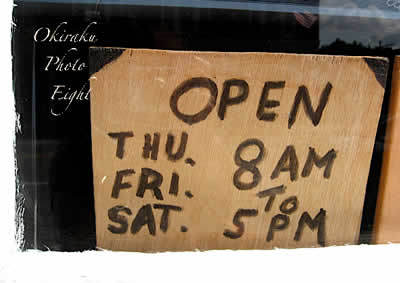 Okiraku
Photo
Eight
OPEN
THU. 8 AM
FRI. TO
SAT. 5 PM